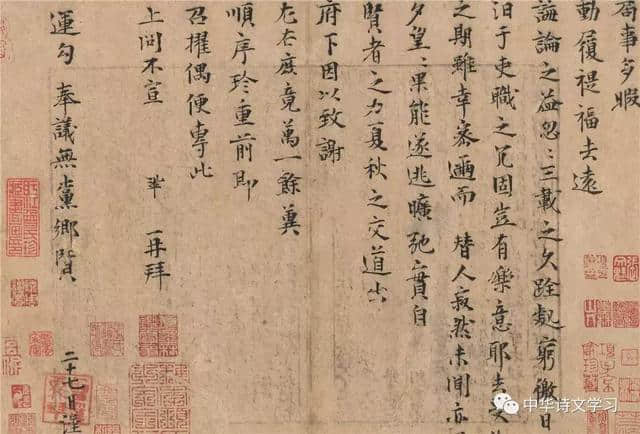 局事多暇
動履禔福去遠
誨論之益忽〻三載之久跧處窮徼日
汩于吏職之冗固豈有樂意耶去受
之期雖幸密邇而替人寂然未聞亦
夕望〻果能遂逃曠弛之責自
賢者之力夏秋之交道出
府下因以致謝
左右庶竟萬一餘冀
順序珍重前即
召擢偶便專此
上問不宣 鞏 再拜
運勾奉議無黨鄉賢 二十七日謹
中华诗文学习